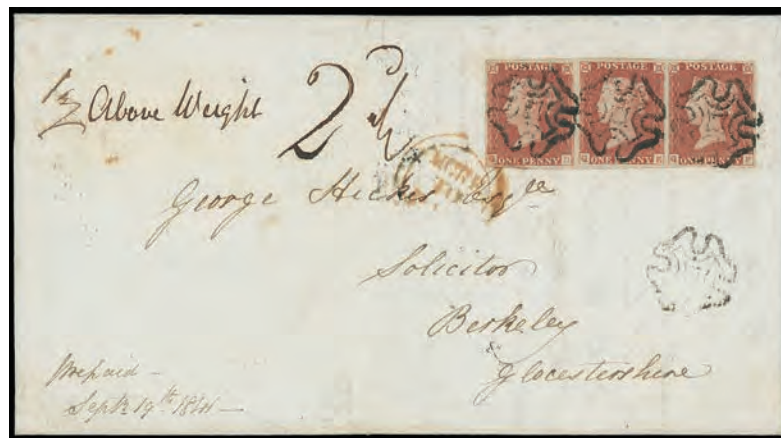 POSTAGE POSTAGE POSTAGE
ONE PENNY ONE PENNY ONE PENNY
Above Weight 2d
George Hickes Esqre
Solicitor
Berkeley
Glocestershire
Prepaid –
Septr 19th 1841 –